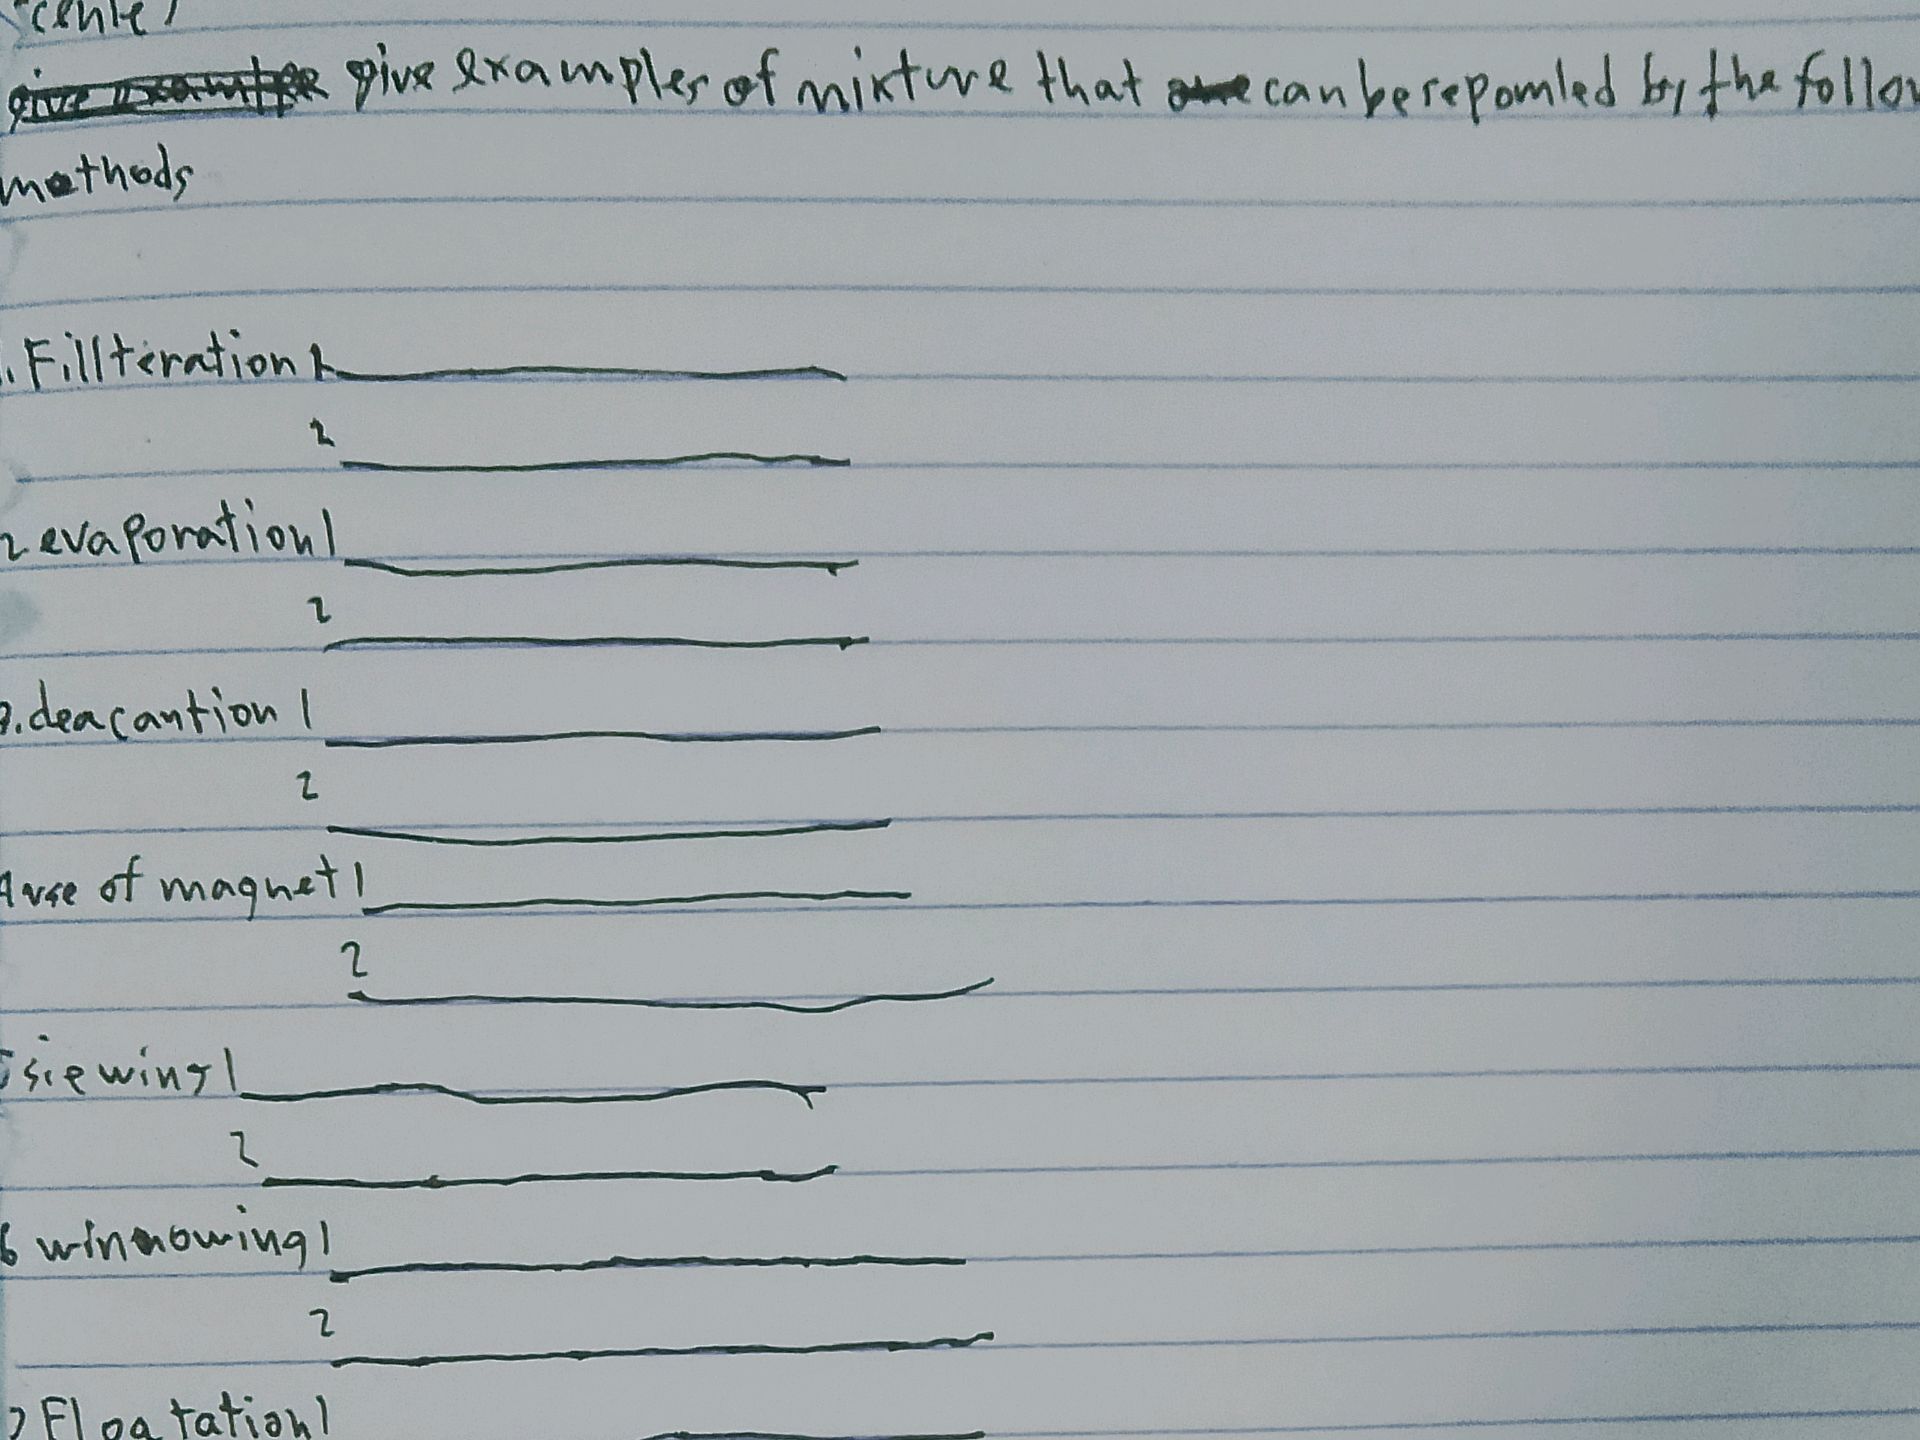 give examples of mixture that can be sepomled by the follow
methods
1. Fillteration 1
2
2 evaporation 1
2
3. deacantion 1
2
4 use of magnet 1
2
5 siewing 1
2
6 winnowing 1
2
7 Floatation 1